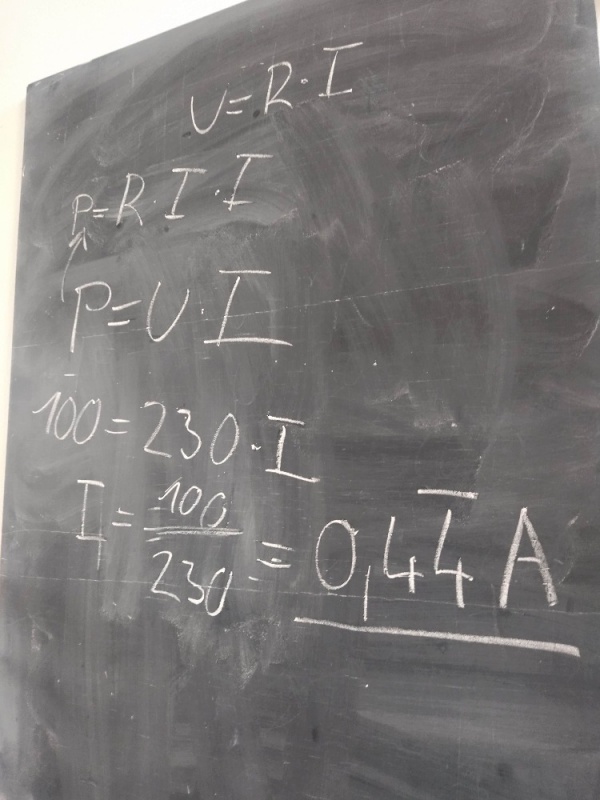 U=R·I
P=R·I·I
P=U·I
100=230·I
I=100/230=0,44A